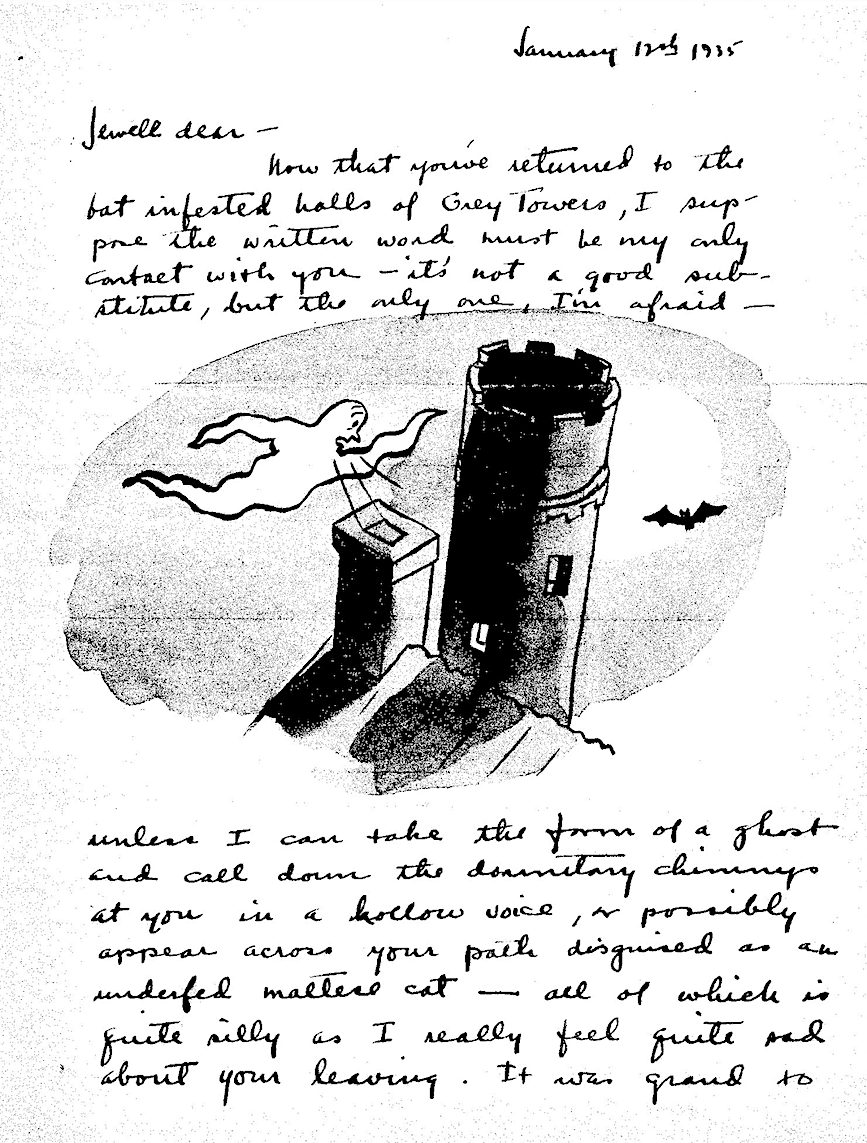 January 12th 1935
Jewell dear —
Now that you've returned to the
bat infested halls of Grey Towers, I sup-
pose the written word must be my only
contact with you — it's not a good sub-
stitute, but the only one, I'm afraid —
unless I can take the form of a ghost
and call down the dormitory chimneys
at you in a hollow voice, or possibly
appear across your path disguised as an
underfed maltese cat — all of which is
quite silly as I really feel quite sad
about your leaving. It was grand to